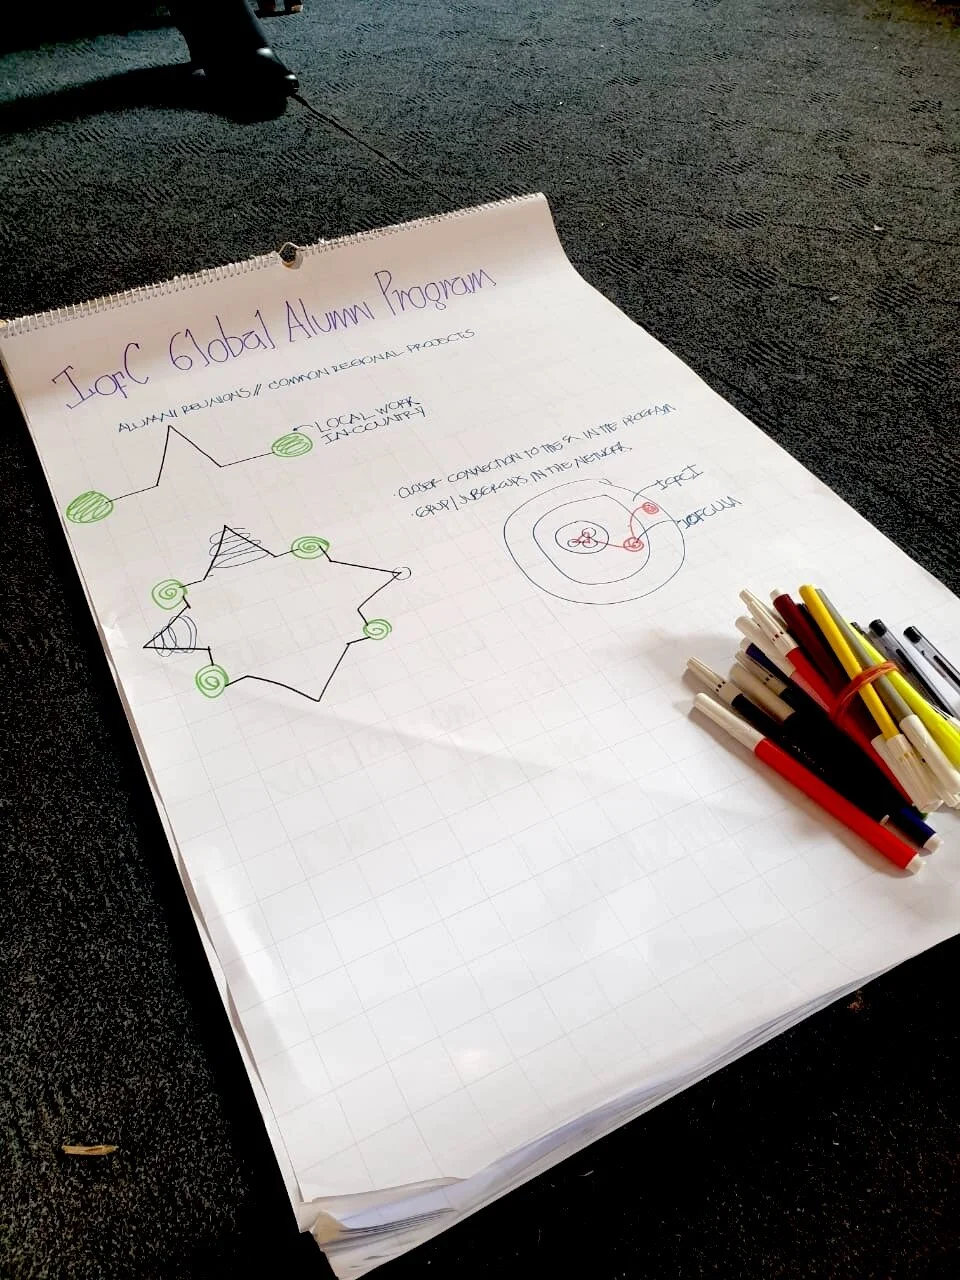 IofC Global Alumni Program
ALUMNI REUNIONS // COMMON REGIONAL PROJECTS
LOCAL WORK
IN-COUNTRY
· CLOSER CONNECTION TO THE IN THE PROGRAM
· GRUP/SUBGROUPS IN THE NETWORK
IOFCI